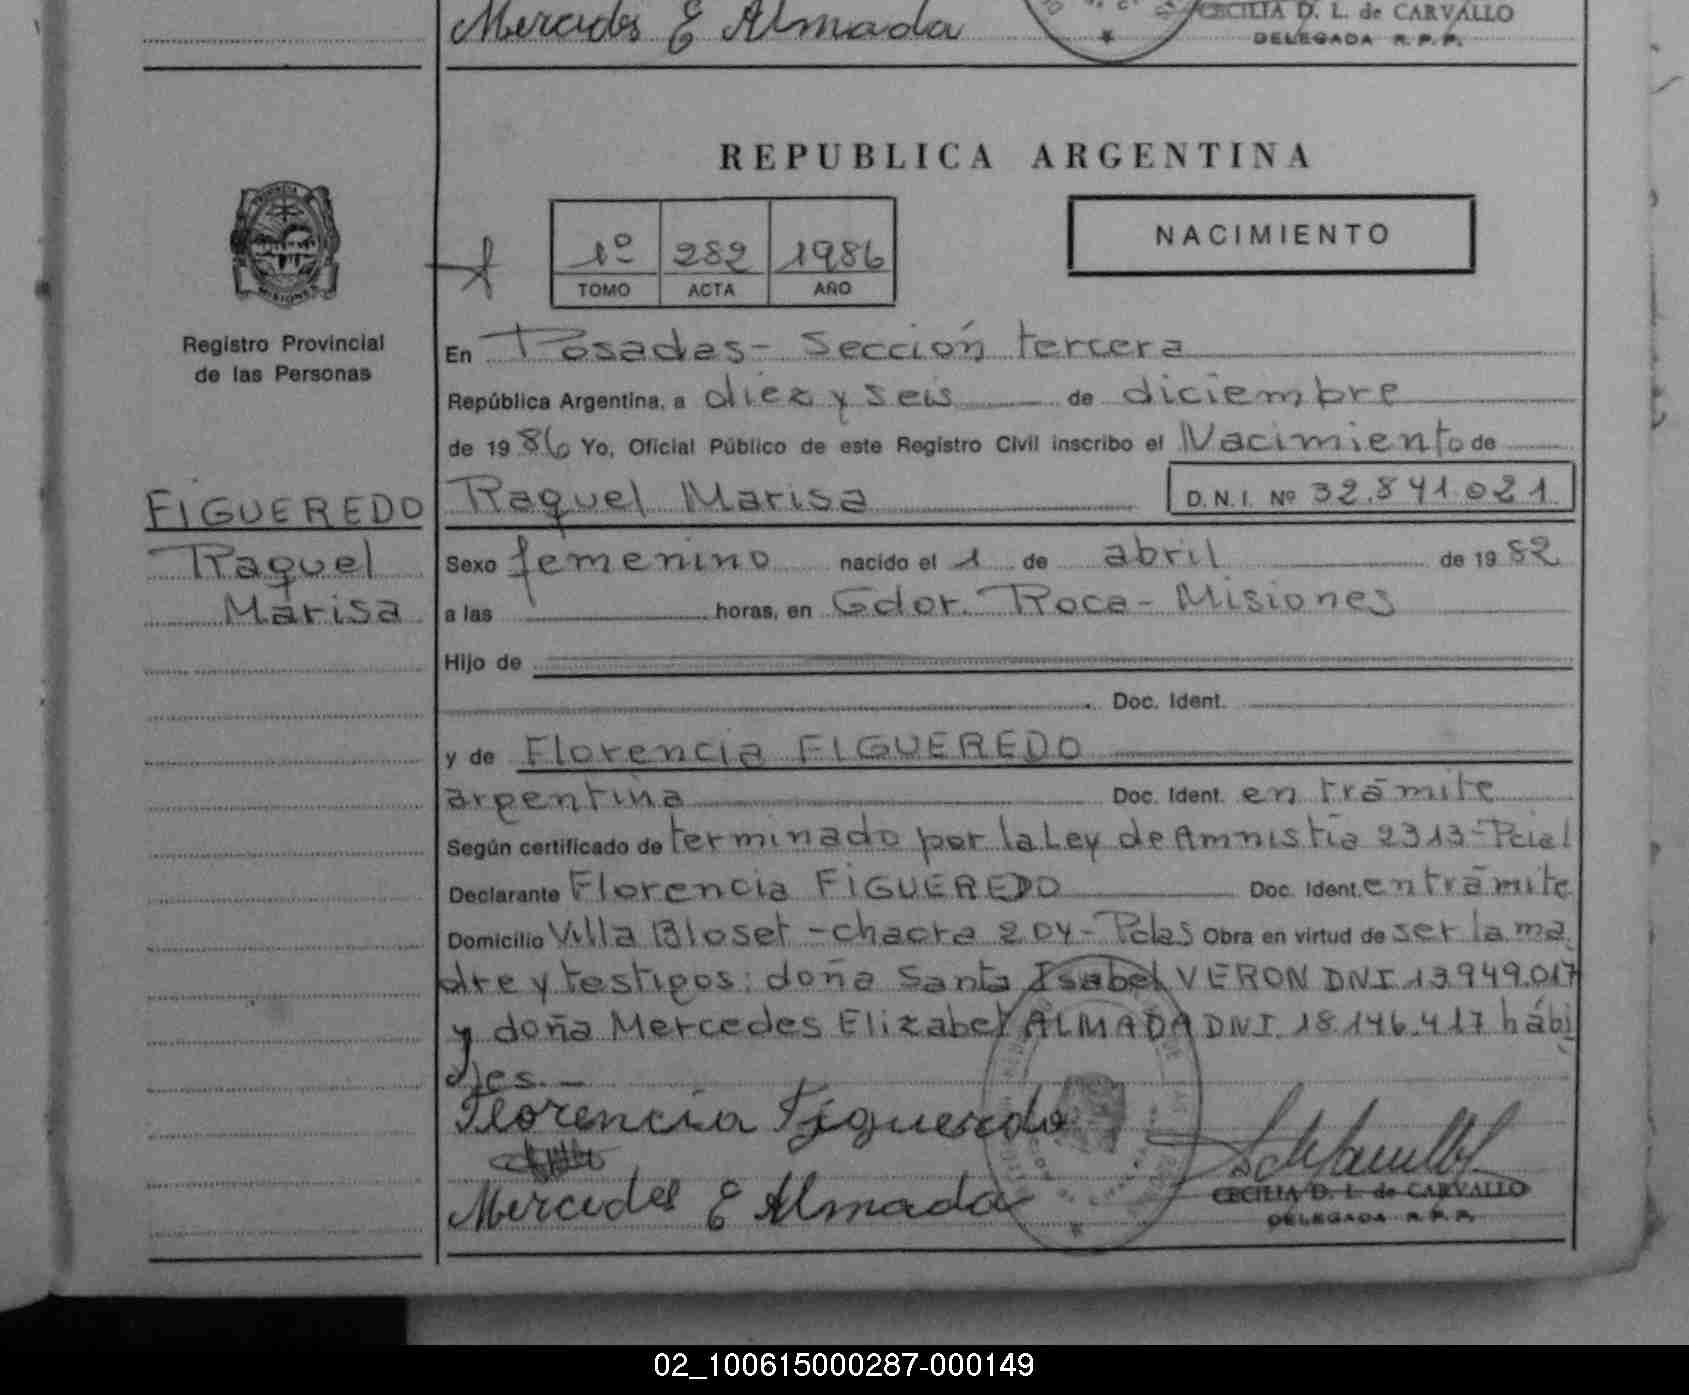 Mercedes E Almada
CECILIA D. L. de CARVALLO
DELEGADA R. P. P.
REPUBLICA ARGENTINA
1º 282 1986
TOMO ACTA AÑO
NACIMIENTO
MISIONES
Registro Provincial
de las Personas
En Posadas - Sección tercera
República Argentina, a diez y seis de diciembre
de 19 86 Yo, Oficial Público de este Registro Civil inscribo el Nacimiento de
FIGUEREDO
Raquel
Marisa
Raquel Marisa D.N.I. Nº 32.841.021
Sexo femenino nacido el 1 de abril de 19 82
a las horas, en Gdor. Roca - Misiones
Hijo de
Doc. Ident.
y de Florencia FIGUEREDO
argentina Doc. Ident. en trámite
Según certificado de terminado por la Ley de Amnistía 2313-Pcial
Declarante Florencia FIGUEREDO Doc. Ident. en trámite
Domicilio Villa Bloset - chacra 204 - Pdas Obra en virtud de ser la ma
dre y testigos: doña Santa Isabel VERON DNI 13.949.017
y doña Mercedes Elizabet ALMADA DNI 18.146.417 hábi
les. -
Florencia Figueredo
Mercedes E Almada
CECILIA D. L. de CARVALLO
DELEGADA R. P. P.
02_100615000287-000149